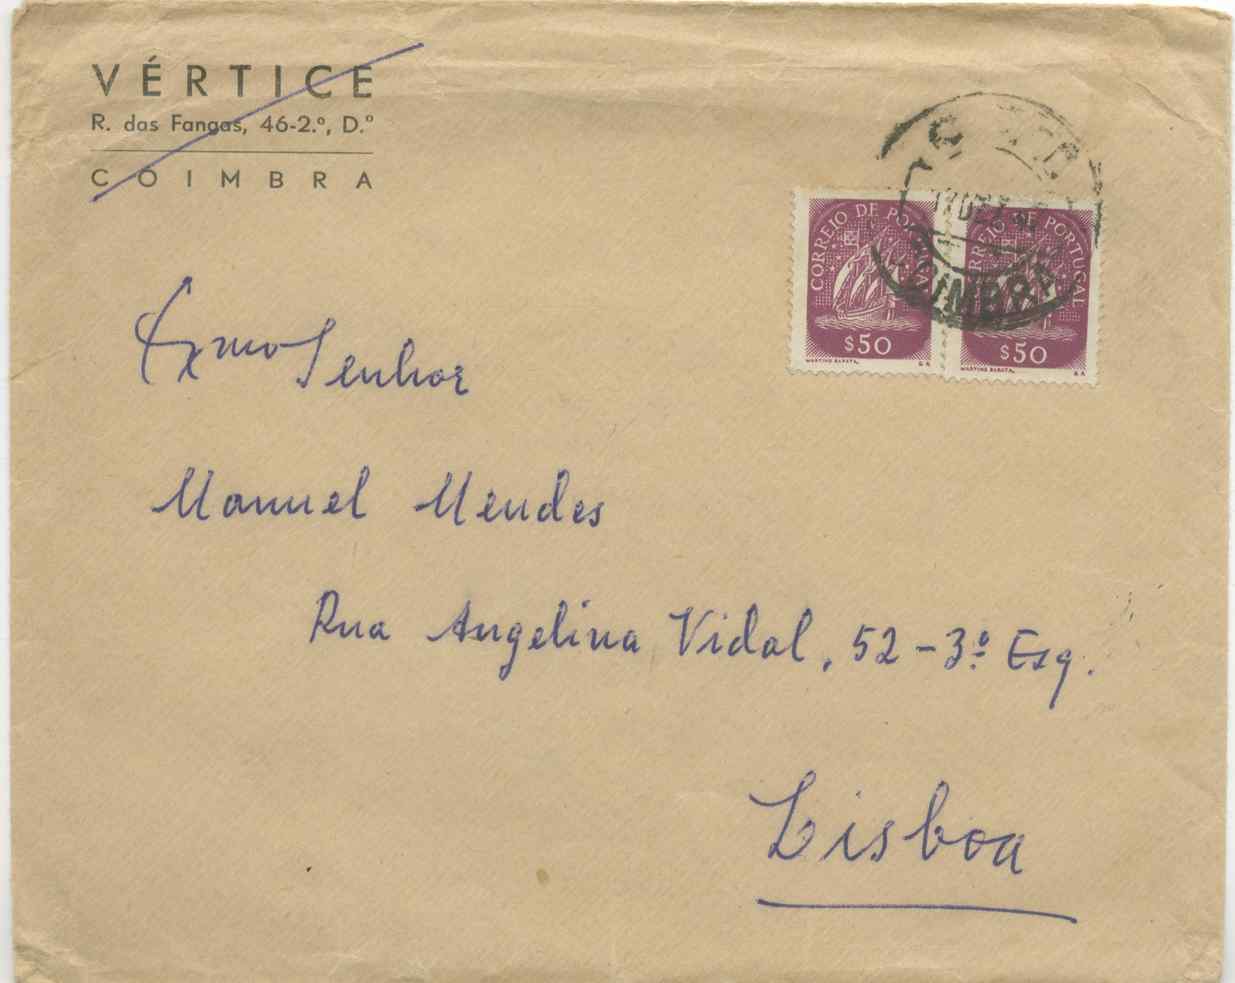 VÉRTICE
R. das Fangas, 46-2.º, D.º
COIMBRA
CORREIO DE
CORREIO DE PORTUGAL
COIMBRA
$50
$50
MARTINS BARATA.
MARTINS BARATA.
Exmo Senhor
Manuel Mendes
Rua Angelina Vidal, 52-3º Esq.
Lisboa